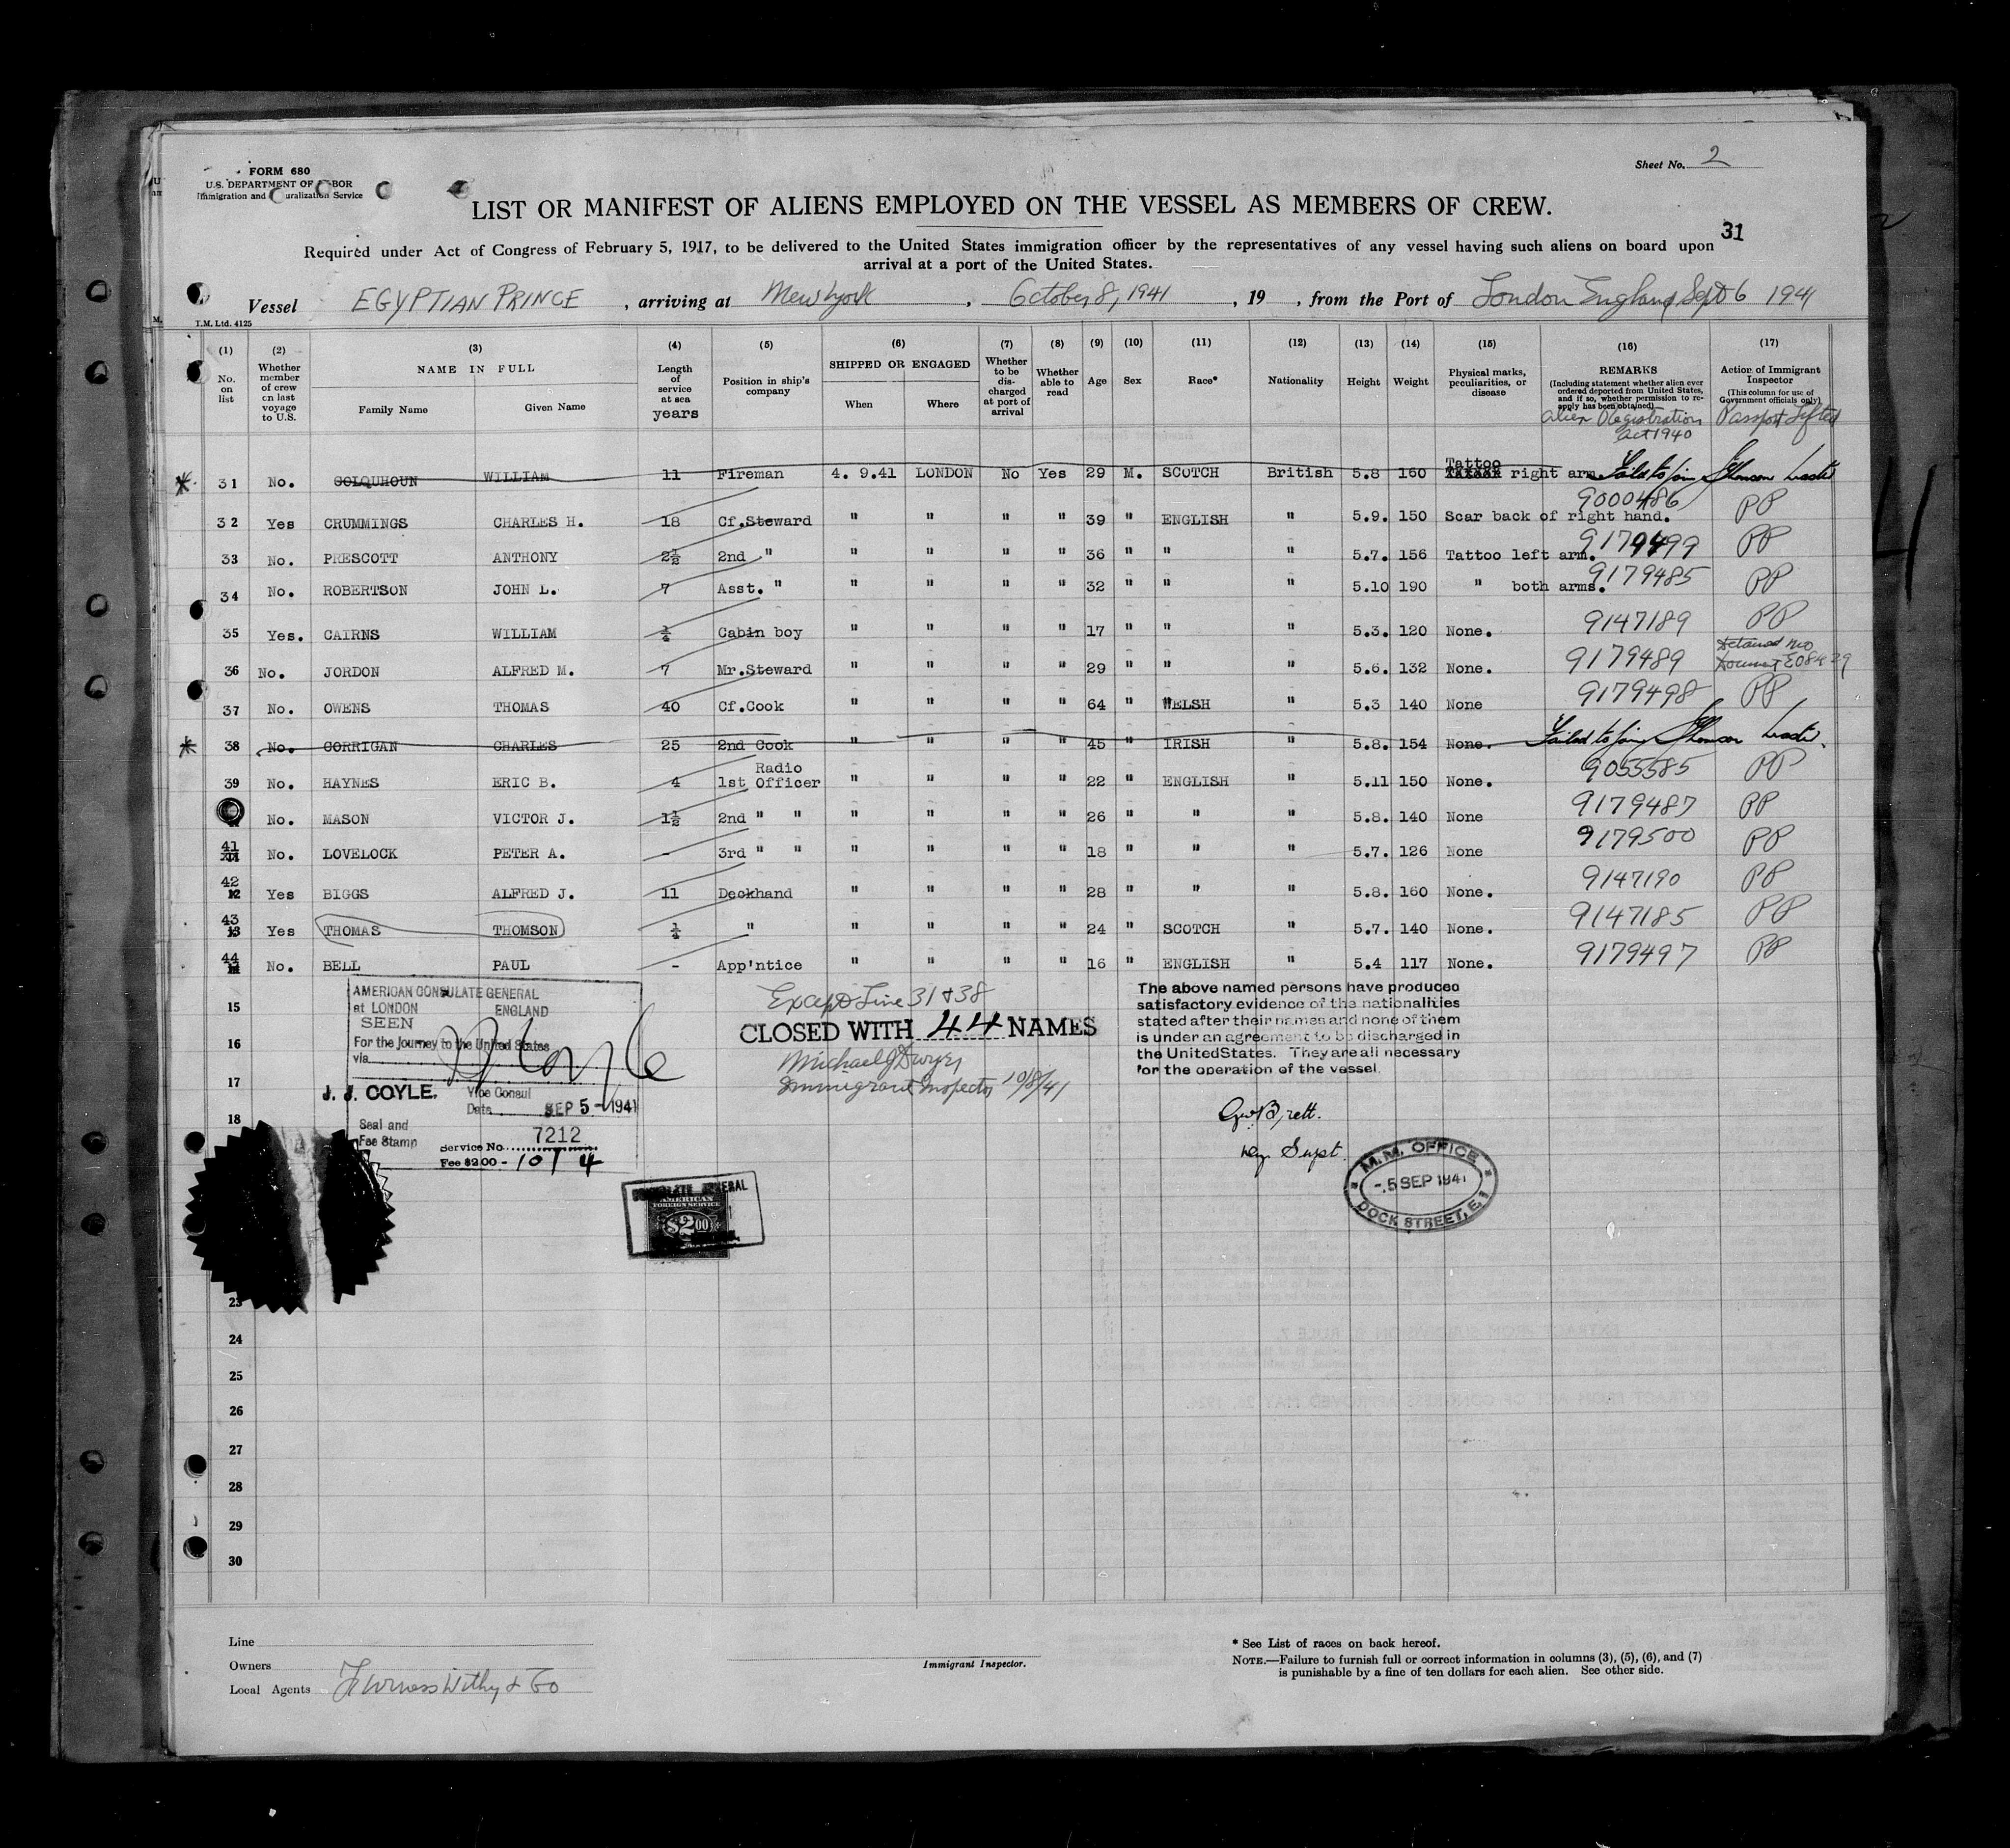 Sheet No. 2
FORM 680
U.S. DEPARTMENT OF LABOR
Immigration and Naturalization Service
LIST OR MANIFEST OF ALIENS EMPLOYED ON THE VESSEL AS MEMBERS OF CREW.
31
Required under Act of Congress of February 5, 1917, to be delivered to the United States immigration officer by the representatives of any vessel having such aliens on board upon
arrival at a port of the United States.
Vessel EGYPTIAN PRINCE , arriving at New York , October 8, 1941 , 19 , from the Port of London England Sept 6 1941
T.M. Ltd. 4125
(1) No. on list (2) Whether member of crew on last voyage to U.S. (3) NAME IN FULL Family Name Given Name (4) Length of service at sea years (5) Position in ship's company (6) SHIPPED OR ENGAGED When Where (7) Whether to be discharged at port of arrival (8) Whether able to read (9) Age (10) Sex (11) Race* (12) Nationality (13) Height (14) Weight (15) Physical marks, peculiarities, or disease (16) REMARKS (Including statement whether alien ever ordered deported from United States, and if so, whether permission to re-apply has been obtained) Alien Registration Act 1940 (17) Action of Immigrant Inspector (This column for use of Government officials only) Passport Lifted
* 31 No. COLQUHOUN WILLIAM 11 Fireman 4. 9.41 LONDON No Yes 29 M. SCOTCH British 5.8 160 Tattoo right arm Failed to join
32 Yes CRUMMINGS CHARLES H. 18 Cf.Steward " " " " 39 " ENGLISH " 5.9. 150 Scar back of right hand. 9000486 PP
33 No. PRESCOTT ANTHONY 2½ 2nd " " " " " 36 " " " 5.7. 156 Tattoo left arm. 9179499 PP
34 No. ROBERTSON JOHN L. 7 Asst. " " " " " 32 " " " 5.10 190 " both arms. 9179485 PP
35 Yes. CAIRNS WILLIAM ¼ Cabin boy " " " " 17 " " " 5.3. 120 None. 9147189 PP
36 No. JORDON ALFRED M. 7 Mr.Steward " " " " 29 " " " 5.6. 132 None. 9179489 Detained no Document
37 No. OWENS THOMAS 40 Cf.Cook " " " " 64 " WELSH " 5.3 140 None 9179498 PP
* 38 No. CORRIGAN CHARLES 25 2nd Cook " " " " 45 " IRISH " 5.8. 154 None. Failed to join
39 No. HAYNES ERIC B. 4 1st Radio Officer " " " " 22 " ENGLISH " 5.11 150 None. 9055585 PP
No. MASON VICTOR J. 1½ 2nd " " " " " " 26 " " " 5.8. 140 None 9179487 PP
41 No. LOVELOCK PETER A. - 3rd " " " " " " 18 " " " 5.7. 126 None 9179500 PP
42 Yes BIGGS ALFRED J. 11 Deckhand " " " " 28 " " " 5.8. 160 None. 9147190 PP
43 Yes THOMAS THOMSON ¼ " " " " " 24 " SCOTCH " 5.7. 140 None. 9147185 PP
44 No. BELL PAUL - App'ntice " " " " 16 " ENGLISH " 5.4 117 None. 9179497 PP
AMERICAN CONSULATE GENERAL
at LONDON ENGLAND
SEEN
For the Journey to the United States
via
J. J. COYLE. Vice Consul
Date SEP 5 - 1941
Seal and
Fee Stamp
Service No. 7212
Fee $2.00 - 10/4
CONSULATE GENERAL
AMERICAN
FOREIGN SERVICE
$2.00
Except Line 31 & 38
CLOSED WITH 44 NAMES
Michael J Dwyer
Immigrant Inspector 10/8/41
The above named persons have produced
satisfactory evidence of the nationalities
stated after their names and none of them
is under an agreement to be discharged in
the United States. They are all necessary
for the operation of the vessel.
Supt.
M.M. OFFICE
5 SEP 1941
DOCK STREET, E.1
15
16
17
18
23
24
25
26
27
28
29
30
Line
Owners
Local Agents Furness Withy & Co
Immigrant Inspector.
* See List of races on back hereof.
NOTE.—Failure to furnish full or correct information in columns (3), (5), (6), and (7)
is punishable by a fine of ten dollars for each alien. See other side.